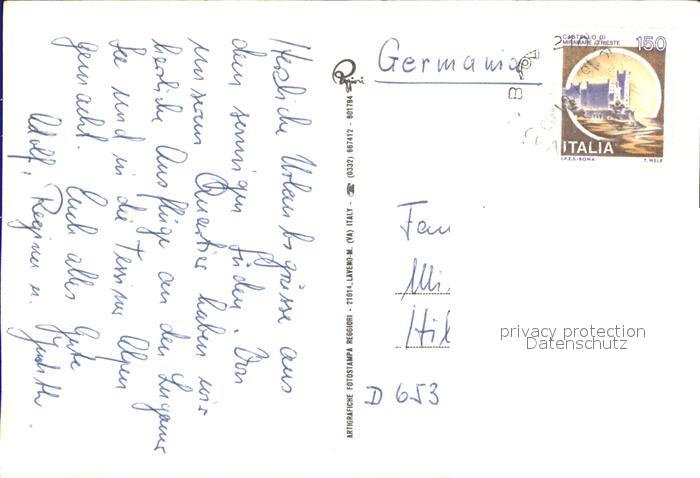 Herzliche Urlaubsgrüsse aus
dem sonnigen Süden. Von
unserem Quartier haben wir
herrliche Ausflüge an den Luganer
See und in die Tessiner Alpen
gemacht. Euch alles Gute
Adolf, Regina u. Judith.
ARTIGRAFICHE FOTOSTAMPA REGGIORI - 21014 LAVENO-M. (VA) ITALY - ☎ (0332) 667412 - 601794
Germania
CASTELLO DI
MIRAMARE - TRIESTE
150
ITALIA
I.P.Z.S.-ROMA T. MELE
Fam
Mi.
Hil
D 653
privacy protection
Datenschutz